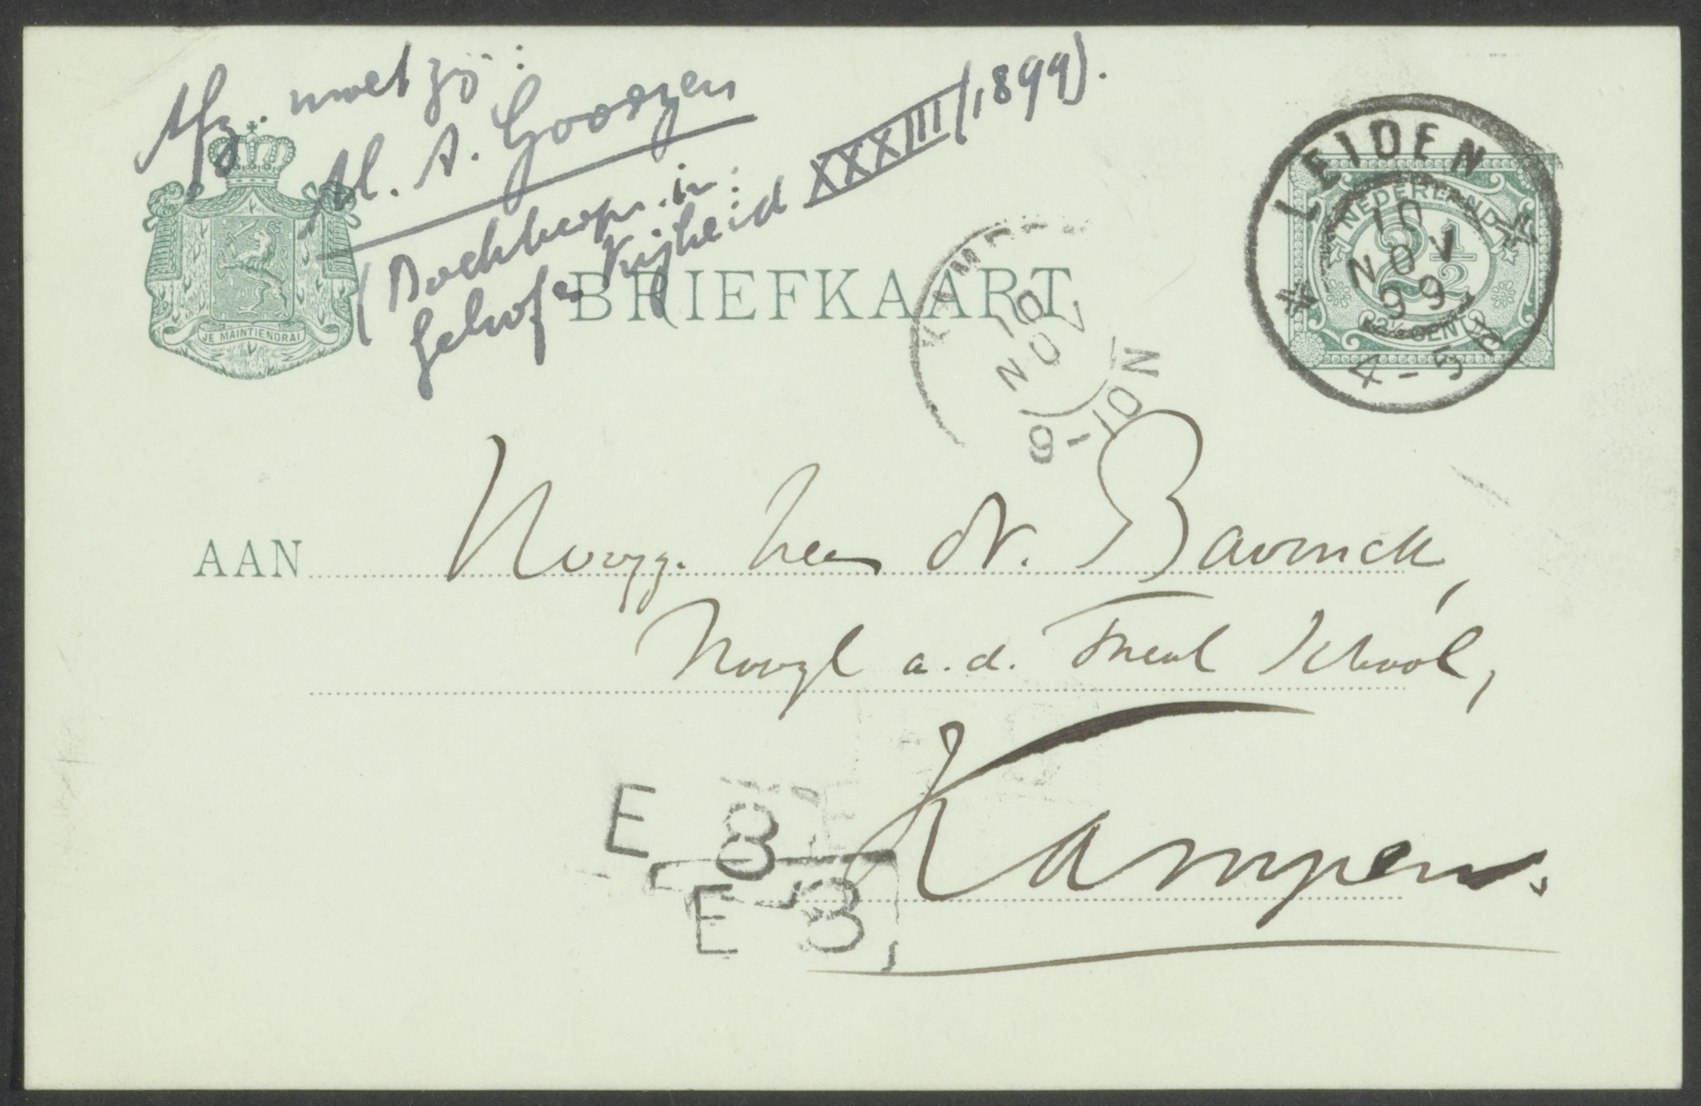 Afz. moet zijn:
M. A. Gooszen
(Boekbespr. in:
Geloof en Vrijheid XXXIII (1899).
JE MAINTIENDRAI
BRIEFKAART
KAMPEN
10 NOV
8-10 N
LEIDEN
10
NOV
99
4-5 N
NEDERLAND
2½
2½ CENT
AAN Hoogg. heer Dr. Bavinck,
Hoogl a.d. Theol School,
Kampen.
E 8
E 8